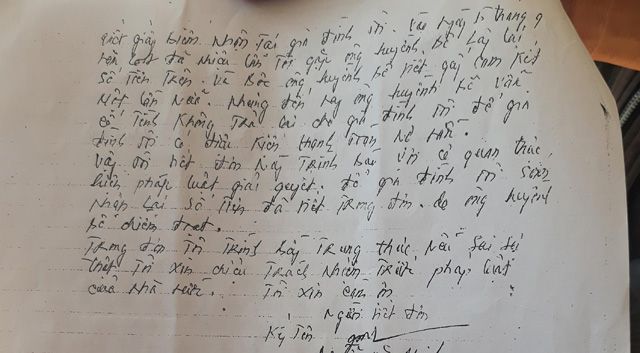 viết giấy biên nhận tại gia đình tôi. vào ngày 15 tháng 9
đã nhiều lần tôi gặp ông huỳnh bé lấy lại
số tiền trên. và Bắc ông huỳnh bé viết giấy cam kết
Một lần nữa. Nhưng đến nay ông huỳnh bé vẫn
cố tình không trả lại cho gia đình tôi để gia
đình tôi có điều kiện thanh toán nợ nần.
Vậy tôi viết đơn này Trình báo với cơ quan thực
hiện pháp luật giải quyết. để gia đình tôi sớm
nhận lại số tiền đã viết trong đơn. do ông huỳnh
bé chiếm đoạt.
Trong đơn tôi trình bày trung thực, Nếu sai sự
thật tôi xin chịu trách nhiệm trước pháp luật
của nhà nước. Tôi xin cảm ơn
Người viết đơn
Ký tên